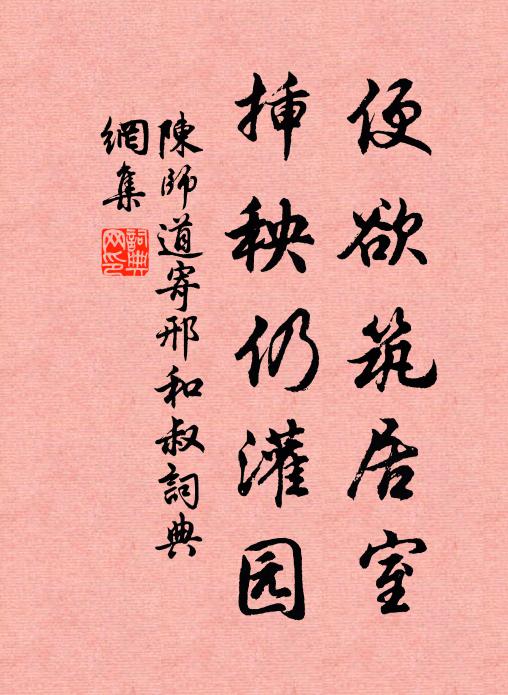 便欲筑居室
挿秧仍灌园
陳師道寄邢和叔詞典
網集
詞典网印